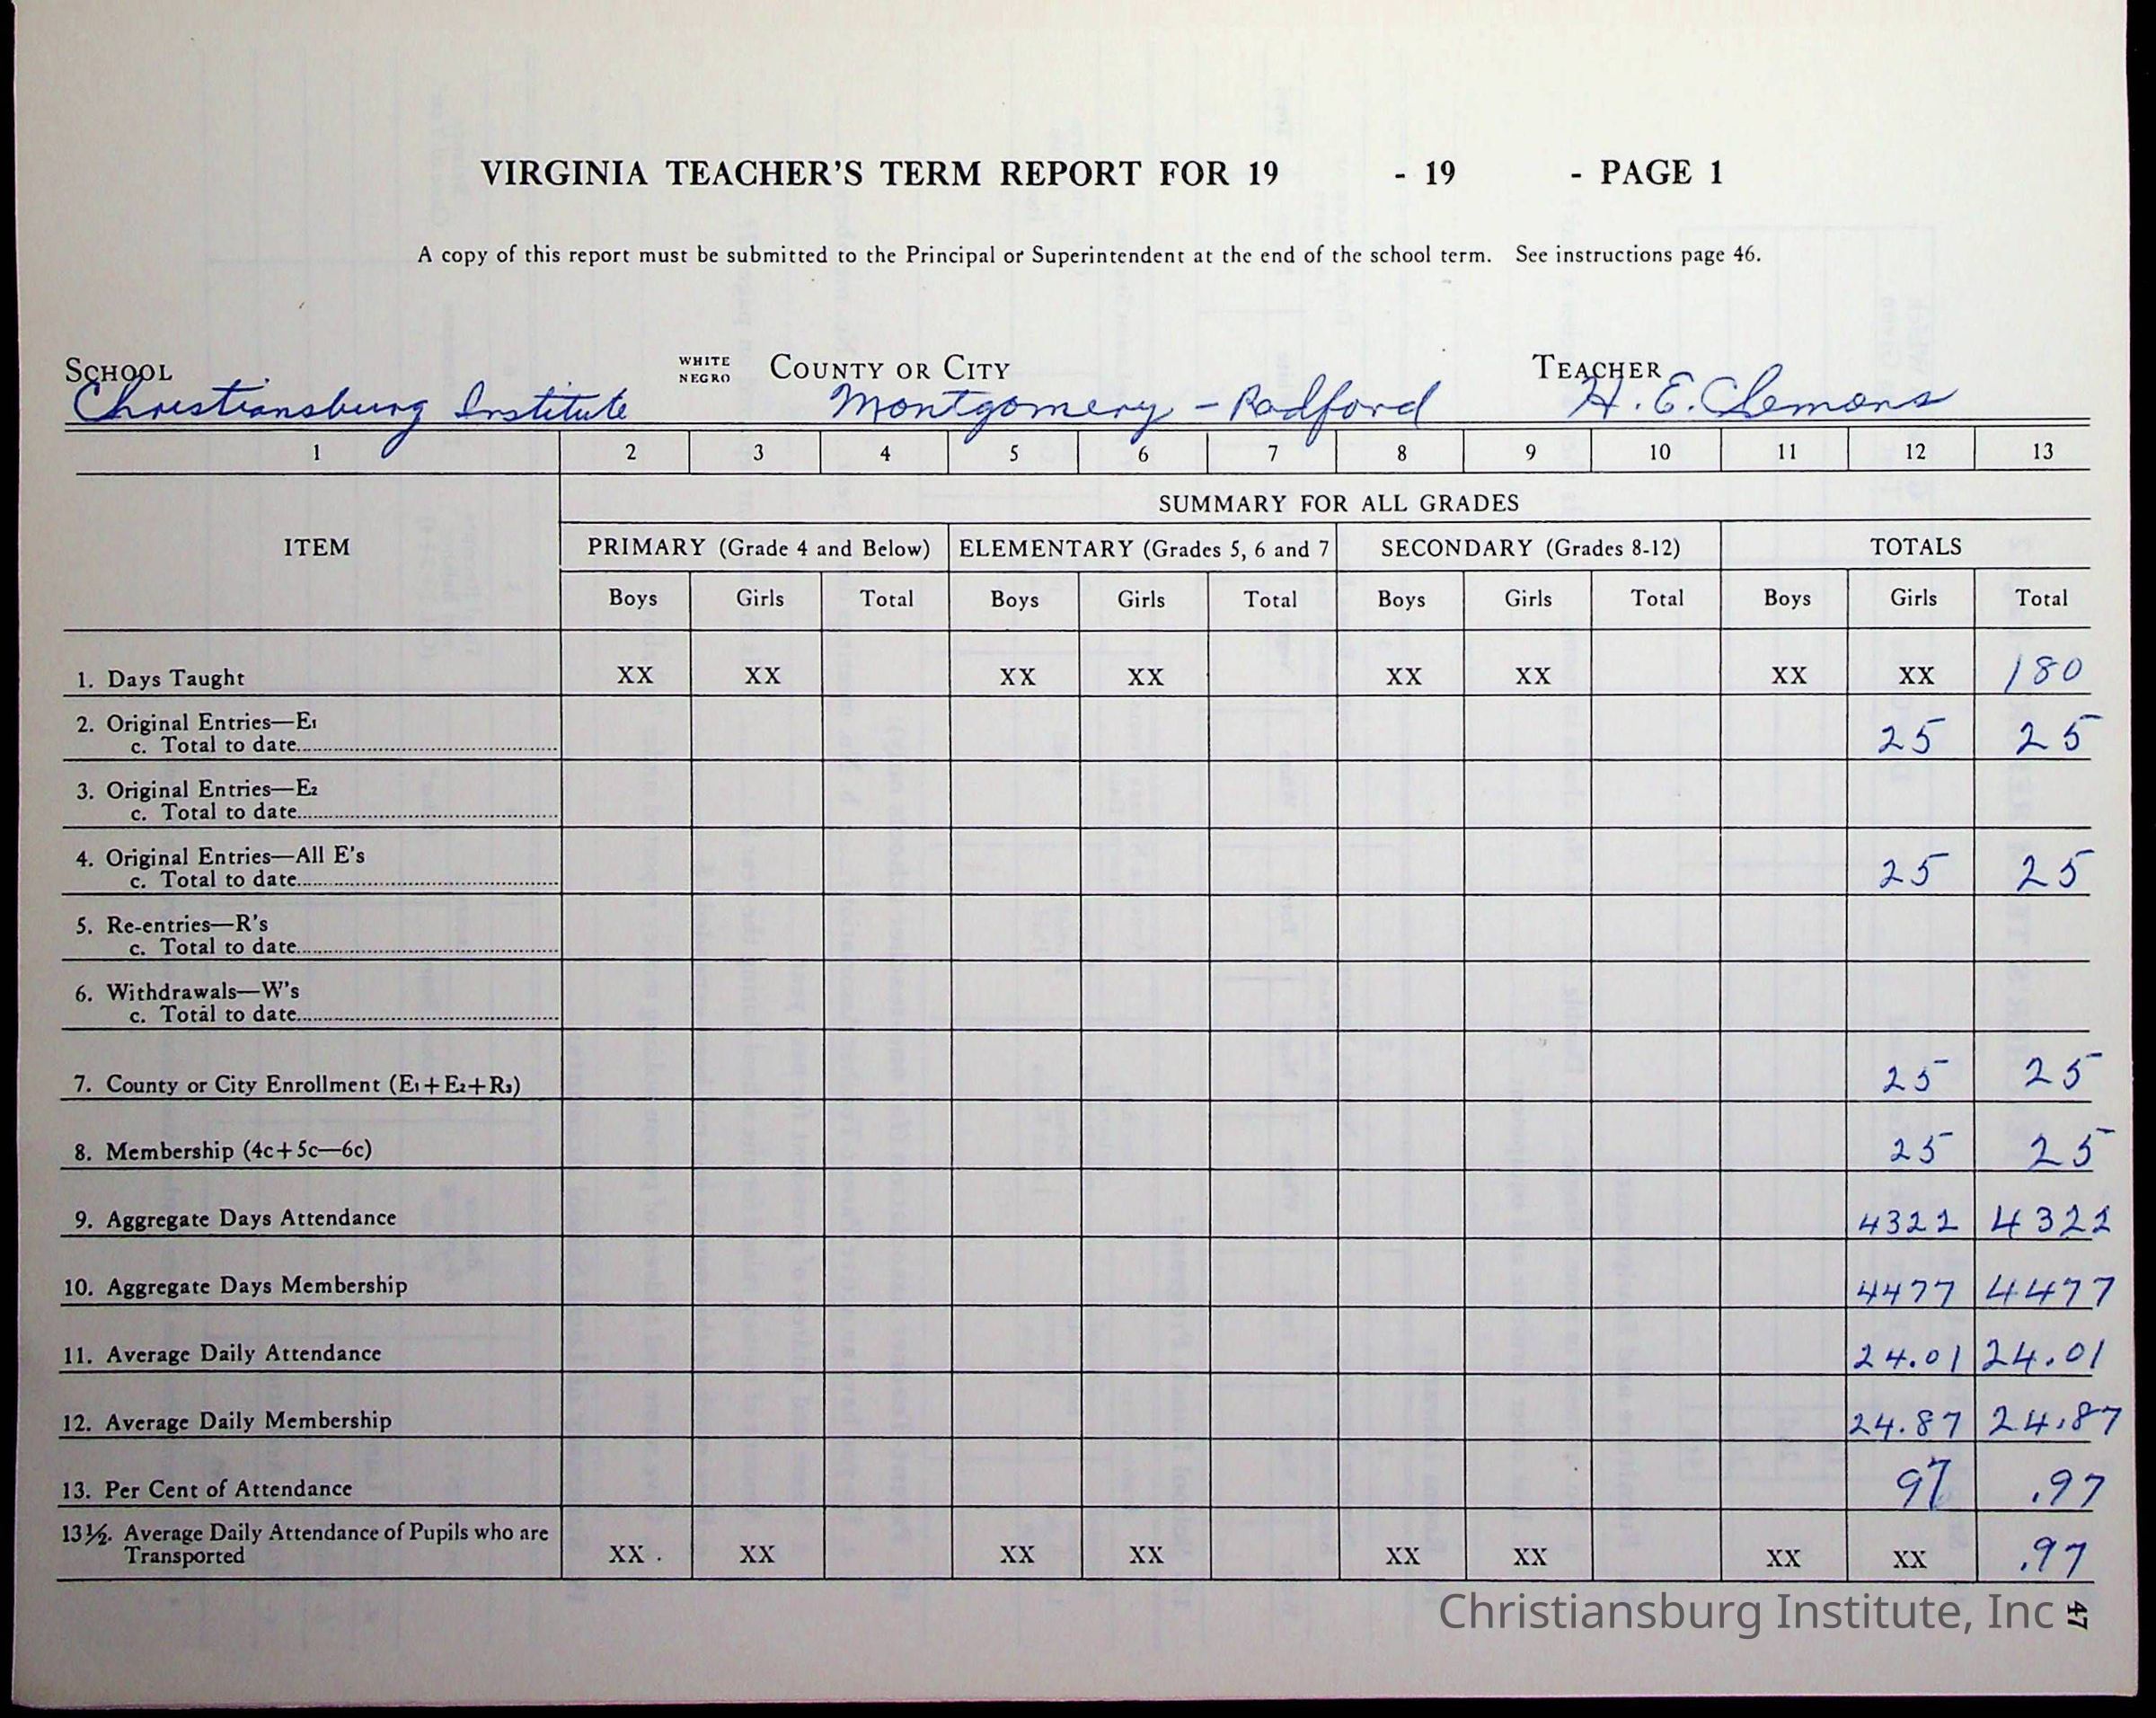 VIRGINIA TEACHER'S TERM REPORT FOR 19 - 19 - PAGE 1
A copy of this report must be submitted to the Principal or Superintendent at the end of the school term. See instructions page 46.
SCHOOL WHITE NEGRO COUNTY OR CITY TEACHER
Christiansburg Institute Montgomery - Radford H. E. Clemons
1 2 3 4 5 6 7 8 9 10 11 12 13
SUMMARY FOR ALL GRADES
ITEM PRIMARY (Grade 4 and Below) ELEMENTARY (Grades 5, 6 and 7 SECONDARY (Grades 8-12) TOTALS
Boys Girls Total Boys Girls Total Boys Girls Total Boys Girls Total
1. Days Taught XX XX XX XX XX XX XX XX 180
2. Original Entries—E1
c. Total to date 25 25
3. Original Entries—E2
c. Total to date
4. Original Entries—All E's
c. Total to date 25 25
5. Re-entries—R's
c. Total to date
6. Withdrawals—W's
c. Total to date
7. County or City Enrollment (E1+E2+R3) 25 25
8. Membership (4c+5c—6c) 25 25
9. Aggregate Days Attendance 4322 4322
10. Aggregate Days Membership 4477 4477
11. Average Daily Attendance 24.01 24.01
12. Average Daily Membership 24.87 24.87
13. Per Cent of Attendance 97 .97
13½. Average Daily Attendance of Pupils who are
Transported XX XX XX XX XX XX XX XX .97
Christiansburg Institute, Inc
47